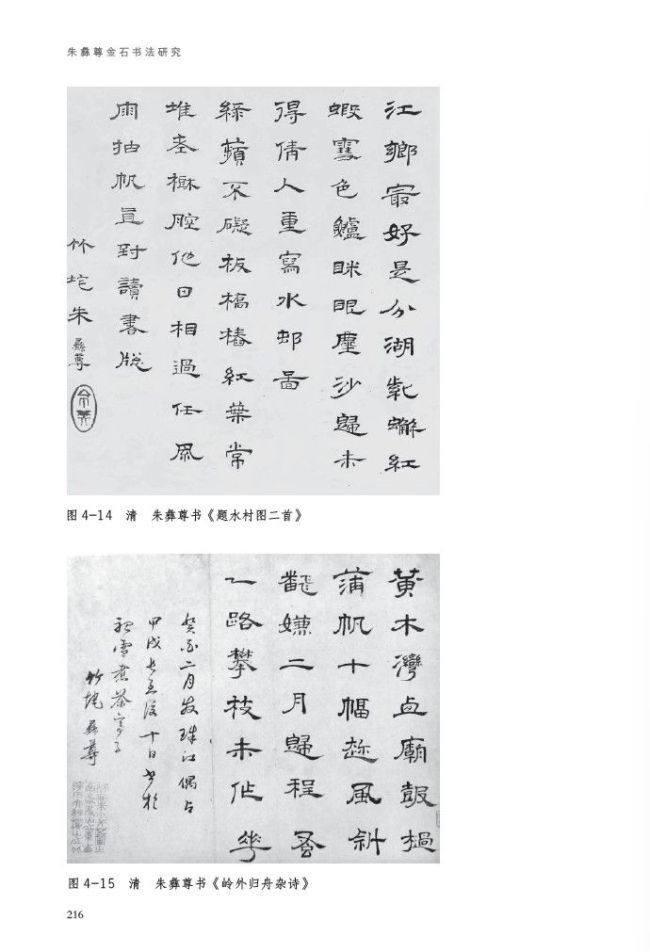 朱彝尊金石书法研究
江鄉最好是分湖紫蠏紅
蝦雪色鱸眯眼塵沙歸未
得倩人重寫水邨啚
綠蘋不礙板橋樁紅葉常
堆腔他日相過任風
雨抽帆直對讀書牕
竹垞朱彝尊
图 4-14 清 朱彝尊书《题水村图二首》
黄木灣直廟鼓撾
蒲帆十幅趂風斜
翻嫌二月歸程蚤
一路攀枝未作華
癸酉二月发珠江偶占
甲戌長至後十日書於
雪煮茶
竹垞彝尊
图 4-15 清 朱彝尊书《岭外归舟杂诗》
216